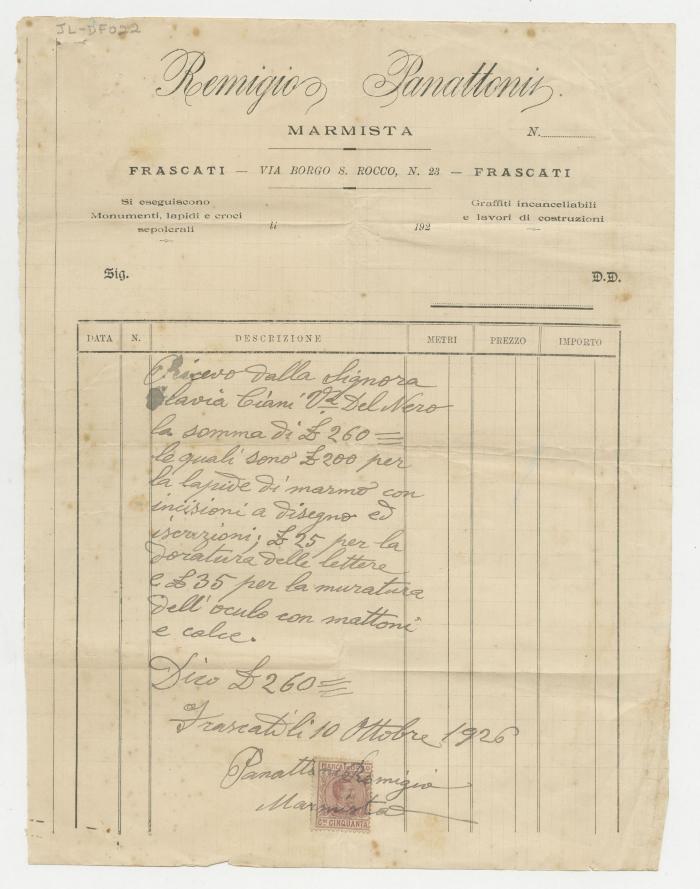 JL-DF022
Remigio Panattoni.
MARMISTA
N.
FRASCATI — VIA BORGO S. ROCCO, N. 23 — FRASCATI
Si eseguiscono
Monumenti, lapidi e croci
sepolcrali
li 192
Graffiti incancellabili
e lavori di costruzioni
Sig. D.D.
DATA N. DESCRIZIONE METRI PREZZO IMPORTO
Ricevo dalla Signora
Flavia Ciani Va Del Nero
la somma di £ 260=
le quali sono £ 200 per
la lapide di marmo con
incisioni a disegno ed
iscrizioni; £ 25 per la
doratura delle lettere
e £ 35 per la muratura
dell'oculo con mattoni
e calce.
Dico £ 260=
Frascati li 10 Ottobre 1926
Panattoni Remigio
Marmista
MARCA DA BOLLO
CMI CINQUANTA